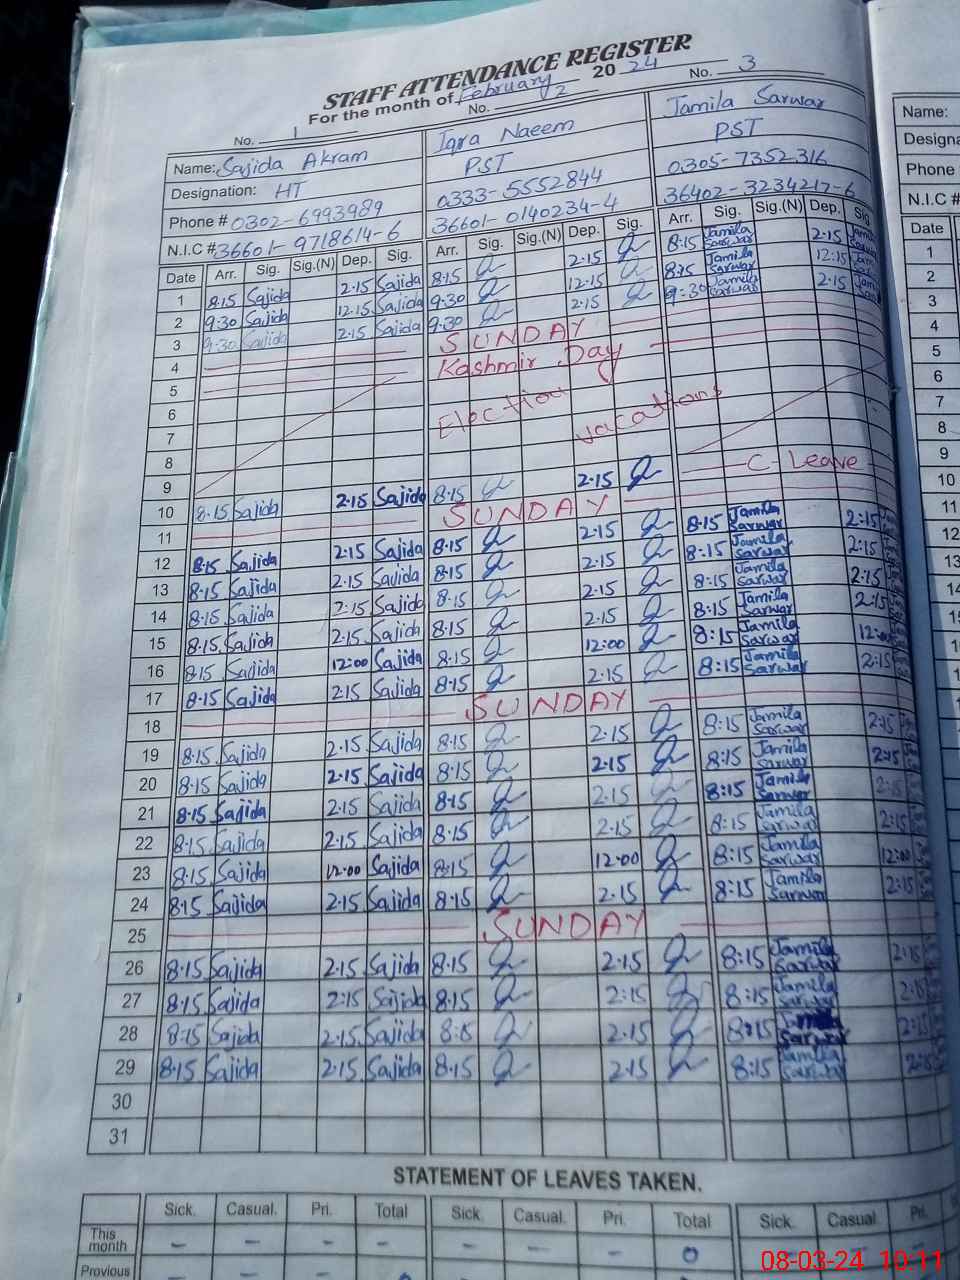 STAFF ATTENDANCE REGISTER
For the month of February 2024
No. 1 No. 2 No. 3
Name: Sajida Akram Iqra Naeem Jamila Sarwar Name:
Designation: HT PST PST
Phone # 0302-6993989 0333-5552844 0305-7352316 Phone
N.I.C # 36601-9718614-6 36601-0140234-4 36402-3234217-6 N.I.C #
Date Arr. Sig. Sig.(N) Dep. Sig. Arr. Sig. Sig.(N) Dep. Sig. Arr. Sig. Sig.(N) Dep. Date
1 8:15 Sajida 2.15 Sajida 8:15 2.15 8:15 Jamila Sarwar 2.15 1
2 9:30 Sajida 12.15 Sajida 9:30 12.15 8:15 Jamila Sarwar 12:15 2
3 9:30 Sajida 2.15 Sajida 9:30 2.15 9:30 Jamila Sarwar 2.15 3
4 SUNDAY 4
5 Kashmir Day 5
6 6
7 Election vacations 7
8 8
9 9
10 8.15 Sajida 2.15 Sajida 8:15 2.15 C. Leave 10
11 SUNDAY 11
12 8.15 Sajida 2.15 Sajida 8.15 2.15 8:15 Jamila Sarwar 2:15 12
13 8.15 Sajida 2.15 Sajida 8.15 2.15 8:15 Jamila Sarwar 2:15 13
14 8.15 Sajida 2:15 Sajida 8.15 2.15 8:15 Jamila Sarwar 2:15 14
15 8.15 Sajida 2.15 Sajida 8.15 2.15 8:15 Jamila Sarwar 2:15
16 8.15 Sajida 12:00 Sajida 8.15 12:00 8:15 Jamila Sarwar
17 8.15 Sajida 2.15 Sajida 8.15 2.15 8:15 Jamila Sarwar 2:15
18 SUNDAY
19 8.15 Sajida 2.15 Sajida 8.15 2.15 8:15 Jamila Sarwar 2:15
20 8.15 Sajida 2.15 Sajida 8.15 2.15 8:15 Jamila Sarwar 2:15
21 8.15 Sajida 2.15 Sajida 8.15 2.15 8:15 Jamila Sarwar 2:15
22 8.15 Sajida 2.15 Sajida 8.15 2.15 8:15 Jamila Sarwar 2:15
23 8.15 Sajida 12:00 Sajida 8:15 12:00 8:15 Jamila Sarwar 12:00
24 8.15 Sajida 2.15 Sajida 8.15 2.15 8:15 Jamila Sarwar 2:15
25 SUNDAY
26 8.15 Sajida 2.15 Sajida 8.15 2.15 8:15 Jamila Sarwar 2:15
27 8.15 Sajida 2:15 Sajida 8.15 2:15 8:15 Jamila Sarwar 2:15
28 8:15 Sajida 2.15 Sajida 8:15 2.15 8:15 Sarwar 2:15
29 8.15 Sajida 2.15 Sajida 8.15 2.15 8:15 Jamila Sarwar 2:15
30
31
STATEMENT OF LEAVES TAKEN.
Sick. Casual. Pri. Total Sick. Casual. Pri. Total Sick. Casual. Pri.
This month - - - - - - - 0
Previous
08-03-24 10:11